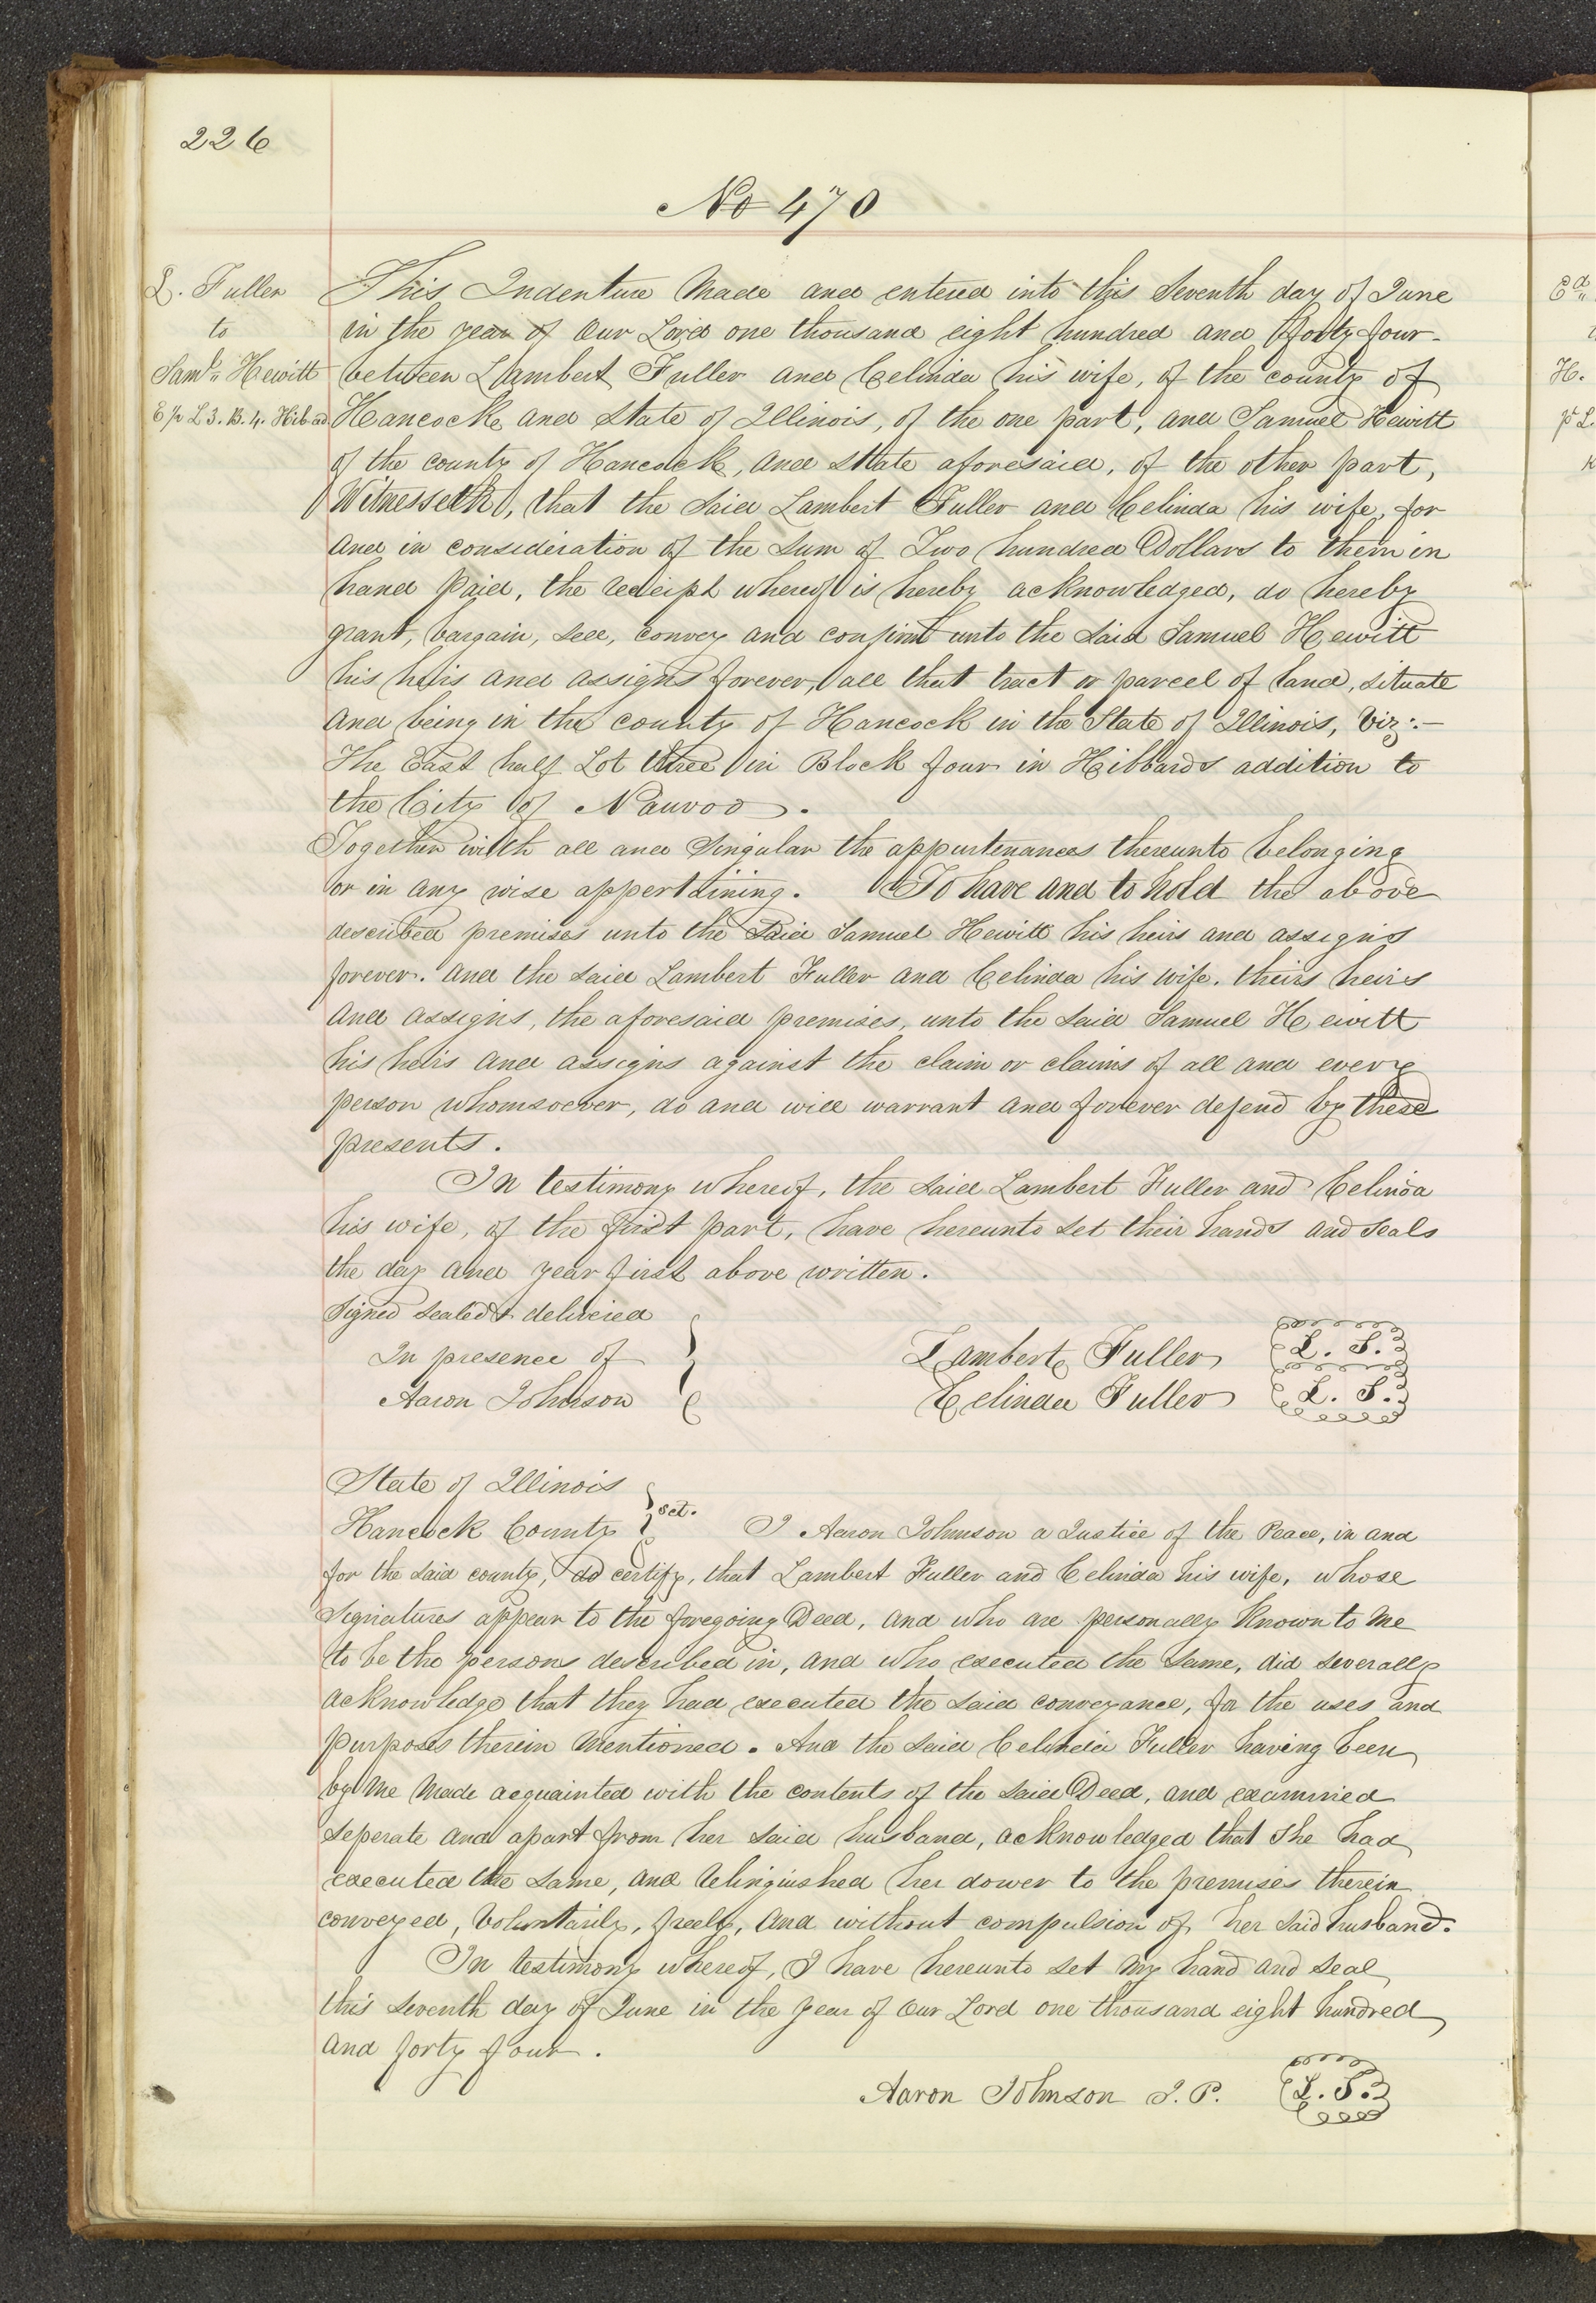 226
No 470
L. Fuller
to
Saml. Hewitt
E ½ L 3. B. 4. Hib. ad
This Indenture Made and entered into this Seventh day of June
in the year of Our Lord one thousand eight hundred and forty four-
between Lambert Fuller and Celinda his wife, of the county of
Hancock and State of Illinois, of the one part, and Samuel Hewitt
of the county of Hancock, and State aforesaid, of the other part,
Witnesseth, that the Said Lambert Fuller and Celinda his wife, for
and in consideration of the Sum of Two hundred Dollars to them in
hand Paid, the receipt whereof is hereby acknowledged, do hereby
grant, bargain, sell, convey and confirm unto the said Samuel Hewitt
his heirs and assigns forever, all that tract or parcel of land, situate
and being in the county of Hancock in the State of Illinois, Viz:-
The East half Lot three in Block four in Hibbards addition to
the City of Nauvoo.
Together with all and Singular the appurtenances thereunto belonging
or in any wise appertaining. To have and to hold the above
described premises unto the Said Samuel Hewitt his heirs and assigns
forever. And the said Lambert Fuller and Celinda his wife. theirs heirs
and assigns, the aforesaid premises, unto the said Samuel Hewitt
his heirs and assigns against the claim or claims of all and every
person whomsoever, do and will warrant and forever defend by these
presents.
In testimony whereof, the said Lambert Fuller and Celinda
his wife, of the first part, have hereunto set their hands and seals
the day and year first above written.
Signed sealed & delivered
In presence of
Aaron Johnson
Lambert Fuller L. S.
Celinda Fuller L. S.
State of Illinois
Hancock County } sct. I Aaron Johnson a Justice of the Peace, in and
for the said county, do certify, that Lambert Fuller and Celinda his wife, whose
Signatures appear to the foregoing Deed, and who are personally known to me
to be the persons described in, and who executed the same, did severally
acknowledge that they had executed the said conveyance, for the uses and
purposes therein mentioned. And the said Celinda Fuller having been
by me made acquainted with the contents of the said Deed, and examined
seperate and apart from her said husband, acknowledged that she had
executed the same, and relinquished her dower to the premises therein
conveyed, Voluntarily, freely, and without compulsion of her said husband.
In testimony whereof, I have hereunto set my hand and seal
this seventh day of June in the year of Our Lord one thousand eight hundred
and forty four.
Aaron Johnson J. P. L. S.